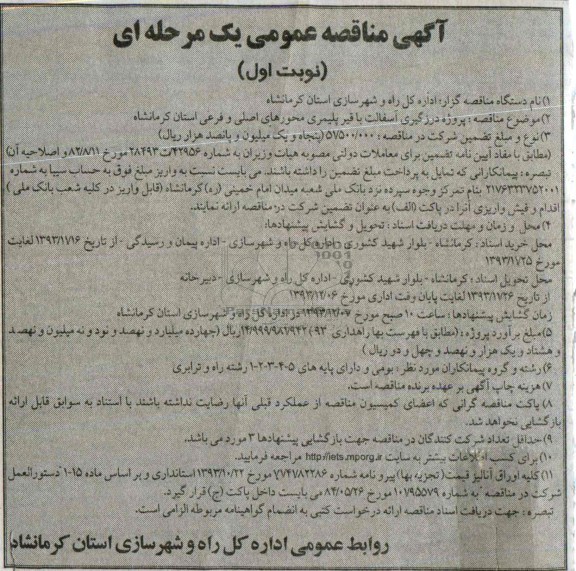 آگهی مناقصه عمومی یک مرحله ای
(نوبت اول)
۱) نام دستگاه مناقصه گزار: اداره کل راه و شهرسازی استان کرمانشاه
۲) موضوع مناقصه : پروژه درزگیری آسفالت با قیر پلیمری محورهای اصلی و فرعی استان کرمانشاه
۳) نوع و مبلغ تضمین شرکت در مناقصه : ۵۷۵۰۰/۰۰۰ (پنجاه و یک میلیون و پانصد هزار ریال)
(مطابق با مفاد آیین نامه تضمین برای معاملات دولتی مصوبه هیات وزیران به شماره ۴۲۹۵۶/ت۲۸۴۹۳ مورخ ۸۲/۸/۱۱ و اصلاحیه آن)
تبصره : پیمانکارانی که تمایل به پرداخت مبلغ تضمین را داشته باشند. می بایست نسبت به واریز مبلغ فوق به حساب سیبا به شماره
۲۱۷۶۳۳۳۷۵۲۰۰۱ بنام تمرکز وجوه سپرده نزد بانک ملی شعبه میدان امام خمینی (ره) کرمانشاه (قابل واریز در کلیه شعب بانک ملی )
اقدام و فیش واریزی آنرا در پاکت (الف) به عنوان تضمین شرکت در مناقصه ارائه نمایند.
۴) محل و زمان و مهلت دریافت اسناد : تحویل و گشایش پیشنهادها:
محل خرید اسناد : کرمانشاه - بلوار شهید کشوری - اداره کل راه و شهرسازی - اداره پیمان و رسیدگی - از تاریخ ۱۳۹۳/۱۱/۱۶ لغایت
مورخ ۱۳۹۳/۱۱/۲۵
محل تحویل اسناد : کرمانشاه - بلوار شهید کشوری - اداره کل راه و شهرسازی - دبیرخانه
از تاریخ ۱۳۹۳/۱۱/۲۶ لغایت پایان وقت اداری مورخ ۱۳۹۳/۱۲/۰۶
زمان گشایش پیشنهادها : ساعت ۱۰ صبح مورخ ۱۳۹۳/۱۲/۰۷ در اداره کل راه و شهرسازی استان کرمانشاه
۵) مبلغ برآورد پروژه : (مطابق با فهرست بها راهداری ۹۳) ۱۴/۹۹۹/۹۸۱/۹۴۲ ریال (چهارده میلیارد و نهصد و نود و نه میلیون و نهصد
و هشتاد و یک هزار و نهصد و چهل و دو ریال )
۶) رشته و گروه پیمانکاران مورد نظر : بومی و دارای پایه های ۵-۴-۳-۲-۱ رشته راه و ترابری
۷) هزینه چاپ آگهی بر عهده برنده مناقصه است.
۸) پاکت مناقصه گرانی که اعضای کمیسیون مناقصه از عملکرد قبلی آنها رضایت نداشته باشند با استناد به سوابق قابل ارائه
بازگشایی نخواهد شد.
۹) حداقل تعداد شرکت کنندگان در مناقصه جهت بازگشایی پیشنهادها ۳ مورد می باشد.
۱۰) برای کسب اطلاعات بیشتر به سایت http://iets.mporg.ir مراجعه فرمایید.
۱۱) کلیه اوراق آنالیز قیمت (تجزیه بها) پیرو نامه شماره ۷/۴۷۸۲۲۸۶ مورخ ۱۳۹۳/۱۰/۲۲ استانداری و بر اساس ماده ۱۵-۱ دستورالعمل
شرکت در مناقصه به شماره ۱۰۷۹۵۵۷۹ مورخ ۸۴/۰۵/۲۶ می بایست داخل پاکت (ج) قرار گیرد.
تبصره : جهت دریافت اسناد مناقصه ارائه درخواست کتبی به انضمام گواهینامه مربوطه الزامی است.
روابط عمومی اداره کل راه و شهرسازی استان کرمانشاه